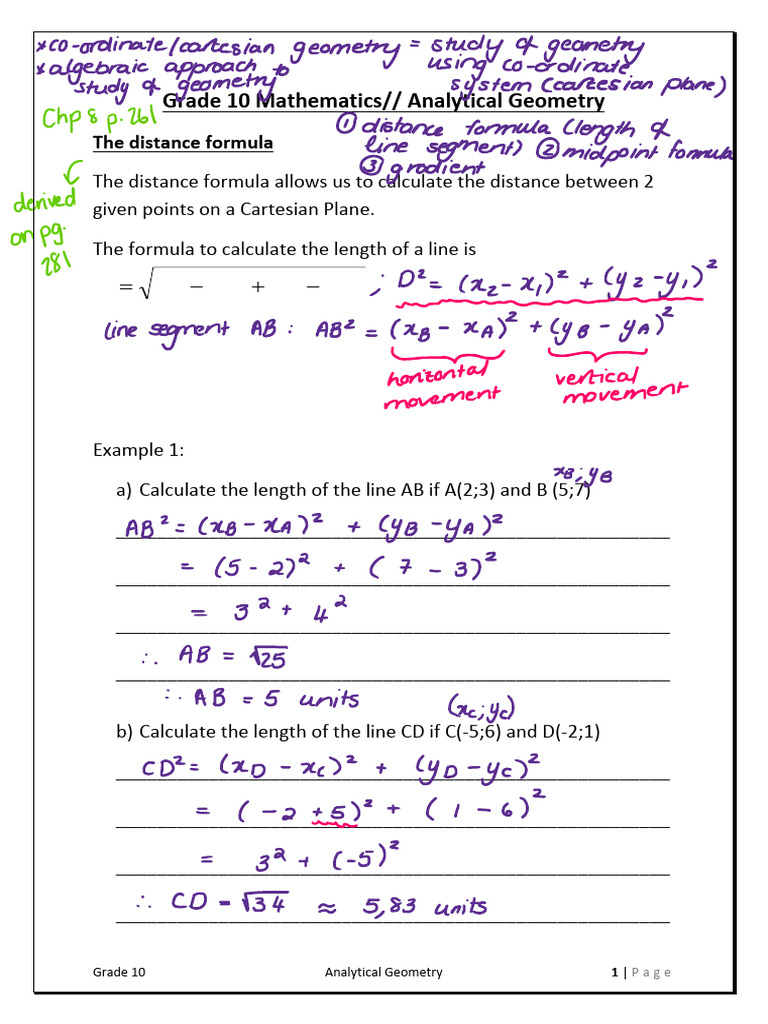 *co-ordinate/cartesian geometry = study of geometry
*algebraic approach to using co-ordinate
study of geometry system (cartesian plane)
Grade 10 Mathematics// Analytical Geometry
Chp 8 p.261
① distance formula (length of
The distance formula
line segment) ② midpoint formula
③ gradient
The distance formula allows us to calculate the distance between 2
derived
given points on a Cartesian Plane.
on pg.
281
The formula to calculate the length of a line is
= √ − + − ; D² = (x₂ − x₁)² + (y₂ − y₁)²
line segment AB : AB² = (x_B − x_A)² + (y_B − y_A)²
horizontal vertical
movement movement
Example 1:
x_B ; y_B
a) Calculate the length of the line AB if A(2;3) and B (5;7)
AB² = (x_B − x_A)² + (y_B − y_A)²
= (5 - 2)² + ( 7 - 3)²
= 3² + 4²
∴ AB = √25
∴ AB = 5 units
(x_C ; y_C)
b) Calculate the length of the line CD if C(-5;6) and D(-2;1)
CD² = (x_D − x_C)² + (y_D − y_C)²
= ( −2 +5)² + ( 1 − 6)²
= 3² + (-5)²
∴ CD = √34 ≈ 5,83 units
Grade 10 Analytical Geometry 1 | Page